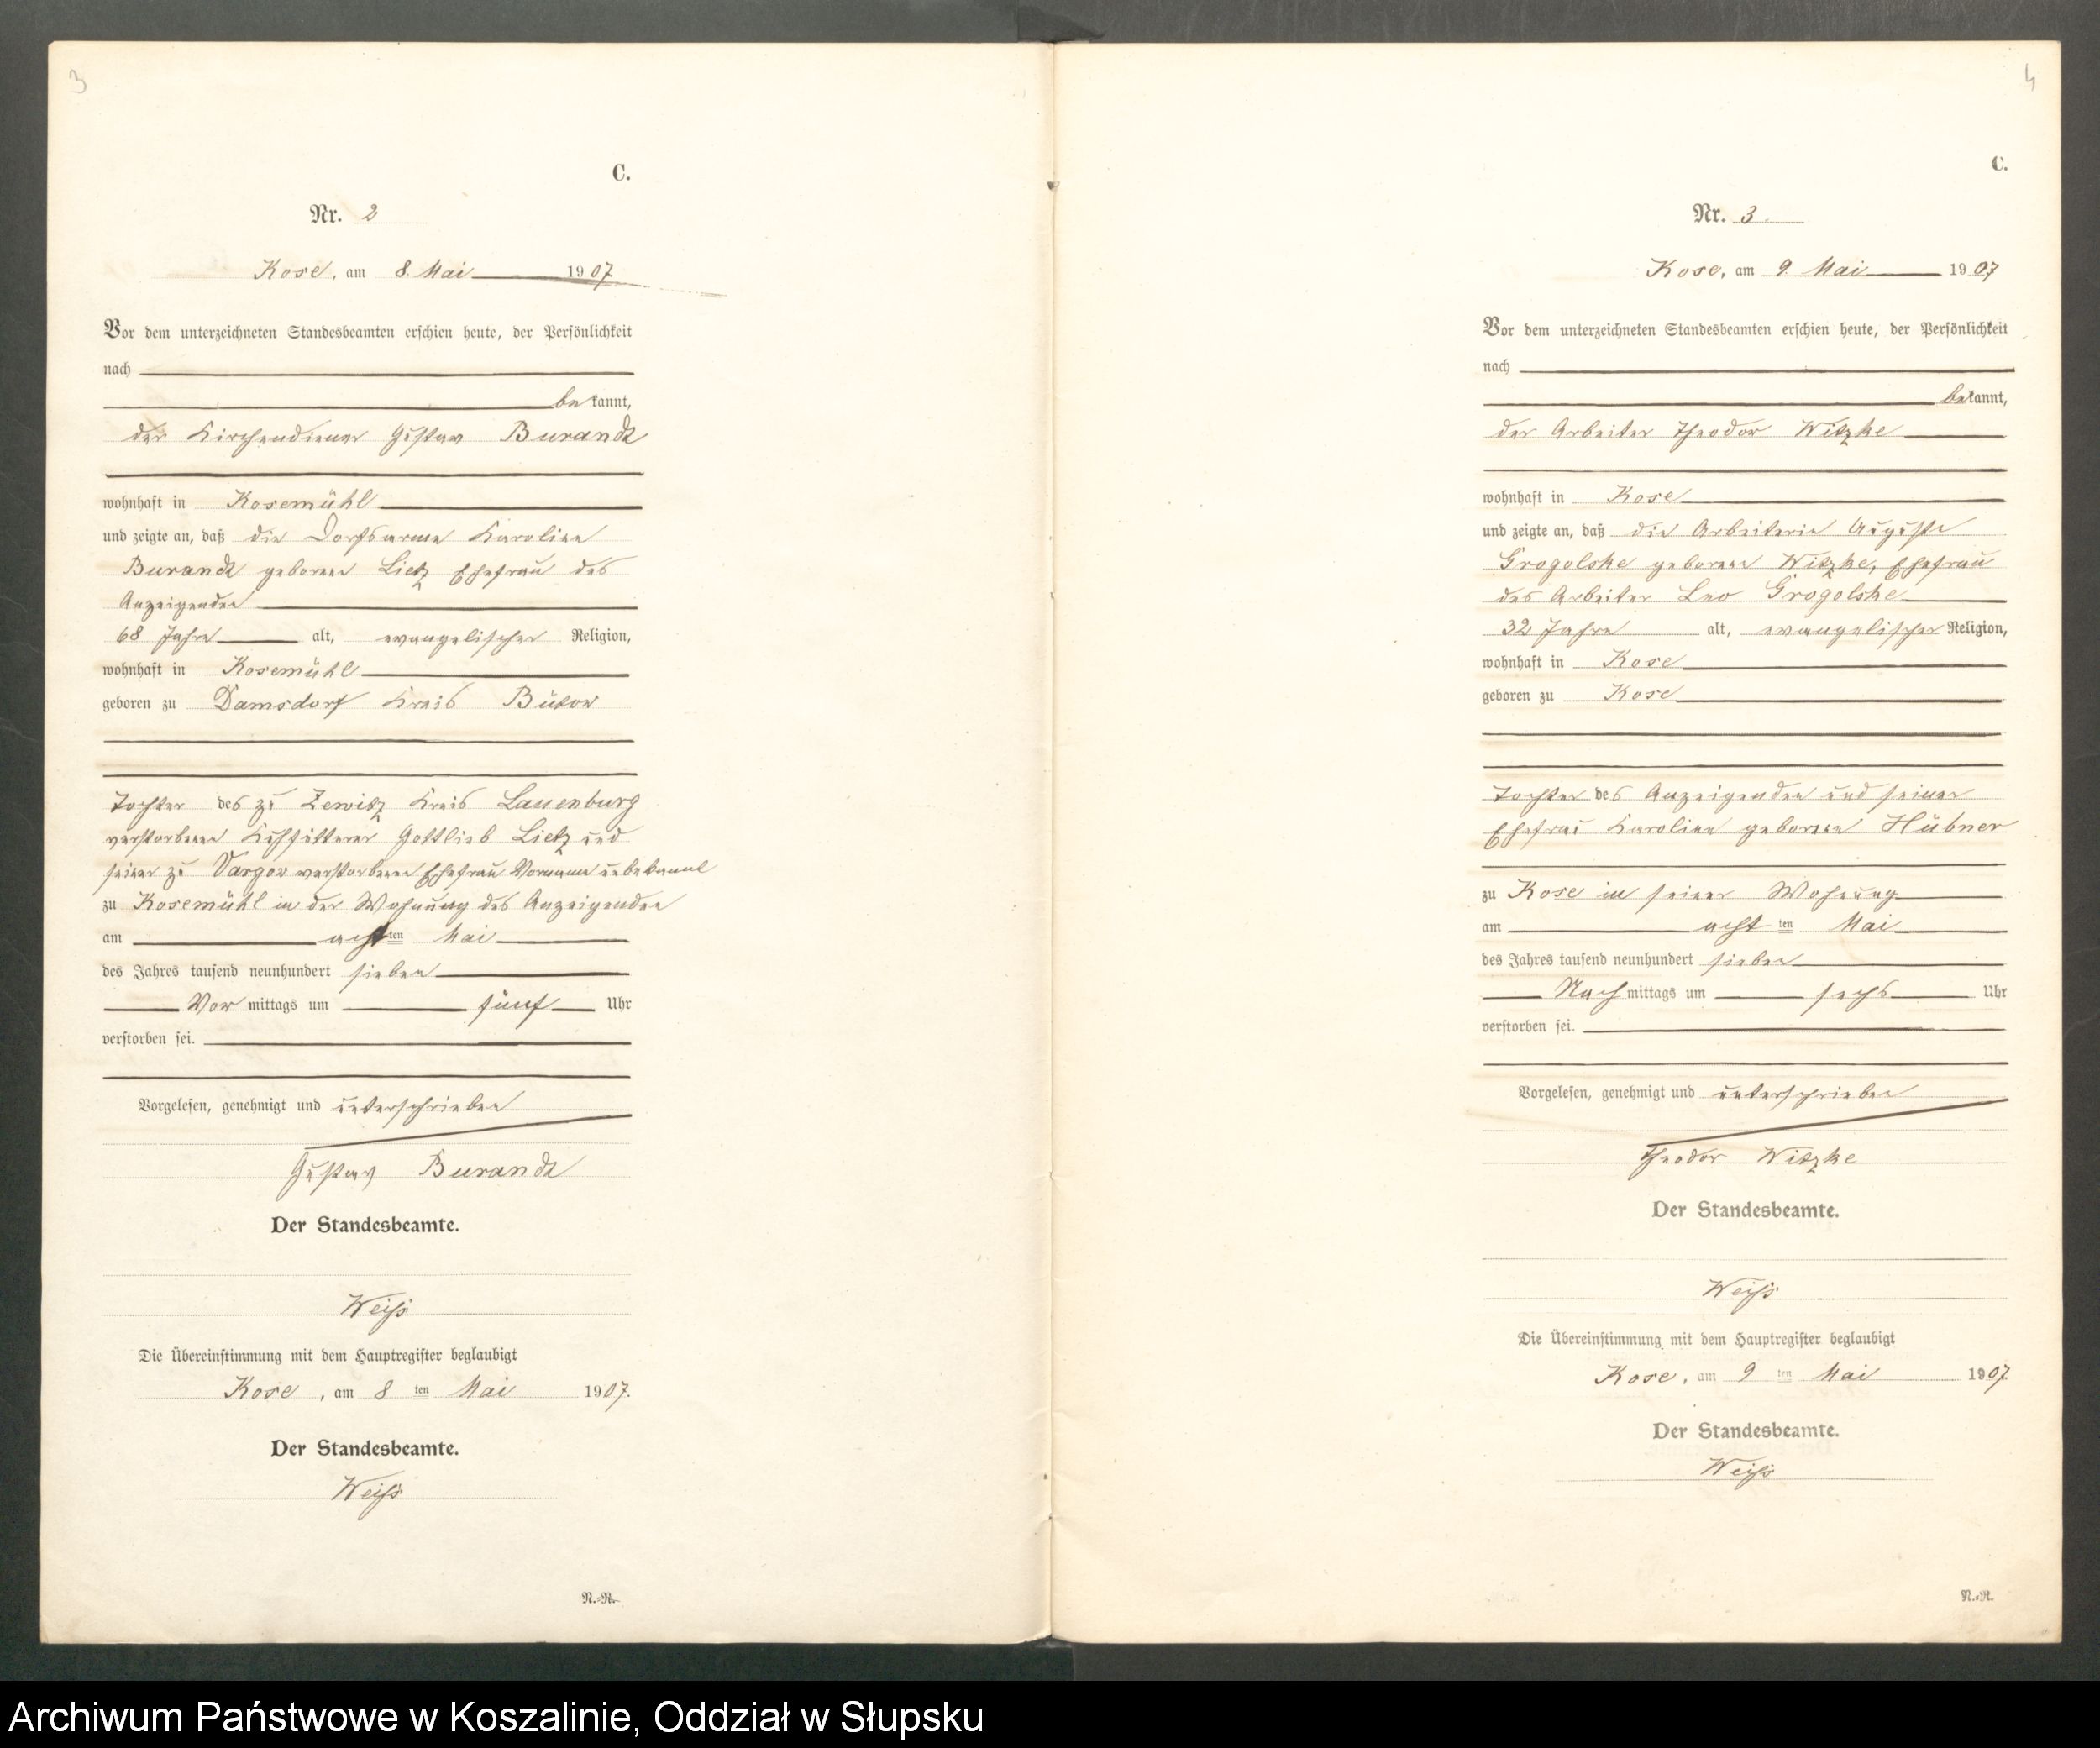 3
C.
Nr. 2
Kose, am 8. Mai 1907
Vor dem unterzeichneten Standesbeamten erschien heute, der Persönlichkeit
nach
bekannt,
der Kirchendiener Gustav Burandt
wohnhaft in Kosemühl
und zeigte an, daß die Dorfsarme Karoline
Burandt geborene Lietz Ehefrau des
Anzeigenden
68 Jahre alt, evangelischer Religion,
wohnhaft in Kosemühl
geboren zu Damsdorf Kreis Bütow
Tochter des zu Zewitz Kreis Lauenburg
verstorbenen Kuhfütterer Gottlieb Lietz und
seiner zu Vargow verstorbenen Ehefrau Vorname unbekannt
zu Kosemühl in der Wohnung des Anzeigenden
am achtten Mai
des Jahres tausend neunhundert sieben
Vor mittags um fünf Uhr
verstorben sei.
Vorgelesen, genehmigt und unterschrieben
Gustav Burandt
Der Standesbeamte.
Weiß
Die Übereinstimmung mit dem Hauptregister beglaubigt
Kose, am 8 ten Mai 1907.
Der Standesbeamte.
Weiß
N.-R.
4
C.
Nr. 3
Kose, am 9. Mai 1907
Vor dem unterzeichneten Standesbeamten erschien heute, der Persönlichkeit
nach
bekannt,
der Arbeiter Theodor Witzke
wohnhaft in Kose
und zeigte an, daß die Arbeiterin Auguste
Grogolske geborene Witzke, Ehefrau
des Arbeiter Leo Grogolske
32 Jahre alt, evangelischer Religion,
wohnhaft in Kose
geboren zu Kose
Tochter des Anzeigenden und seiner
Ehefrau Karoline geborene Hübner
zu Kose in seiner Wohnung
am acht ten Mai
des Jahres tausend neunhundert sieben
Nach mittags um sechs Uhr
verstorben sei.
Vorgelesen, genehmigt und unterschrieben
Theodor Witzke
Der Standesbeamte.
Weiß
Die Übereinstimmung mit dem Hauptregister beglaubigt
Kose, am 9 ten Mai 1907.
Der Standesbeamte.
Weiß
N.-R.
Archiwum Państwowe w Koszalinie, Oddział w Słupsku